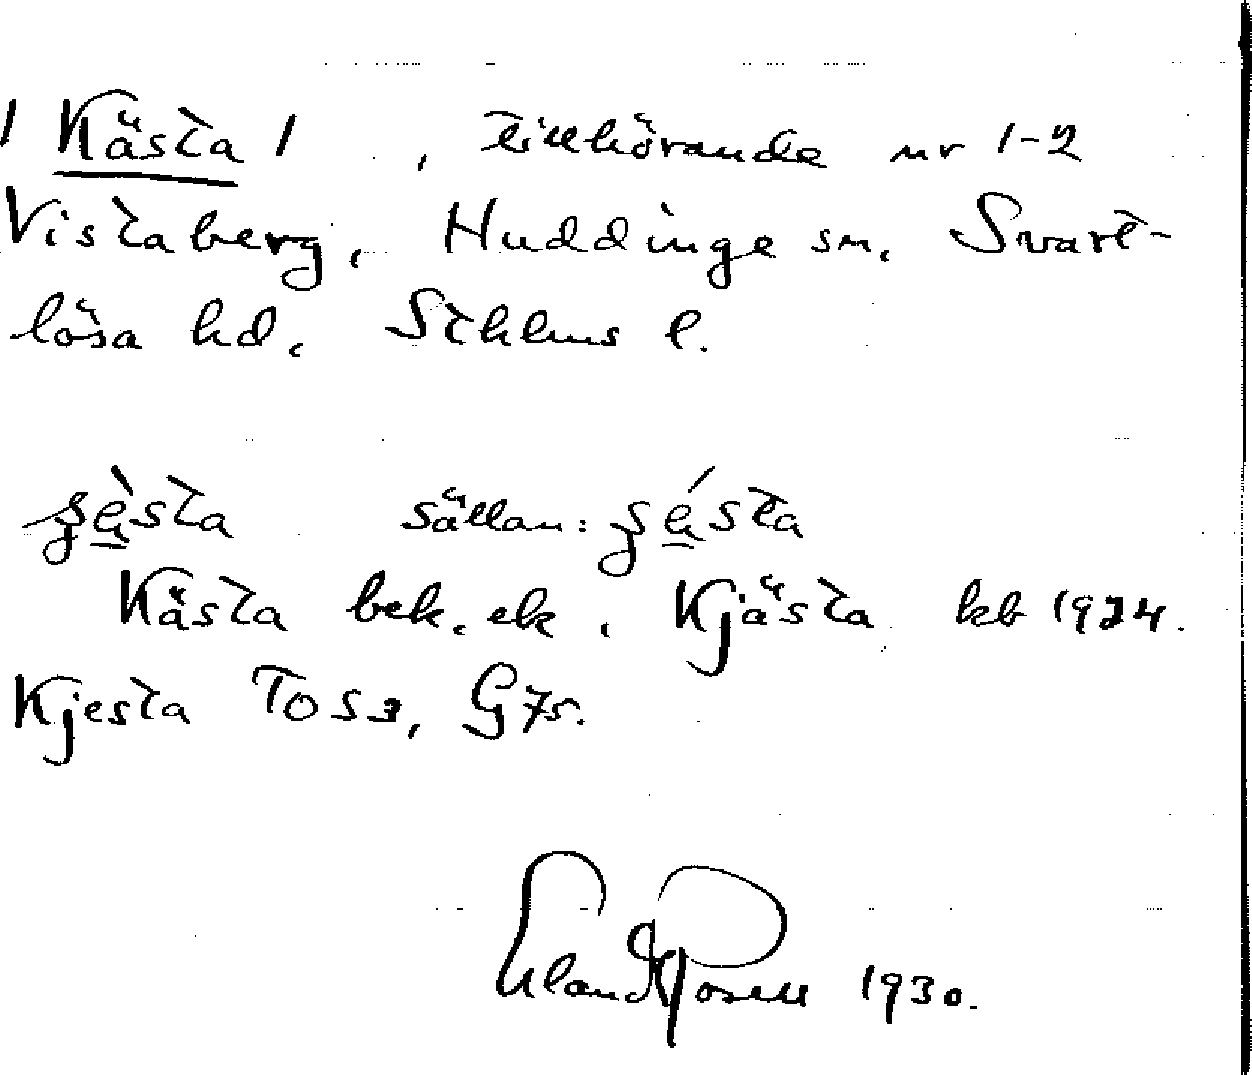 / Kästa / , tillhörande nr 1-2
Vistaberg, Huddinge sn, Svart-
lösa hd, Sthlms l.
sällan:
Kästa bek. ek, Kjästa kb 1924.
Kjesta TOS3, G75.
Erland Rosell 1930.